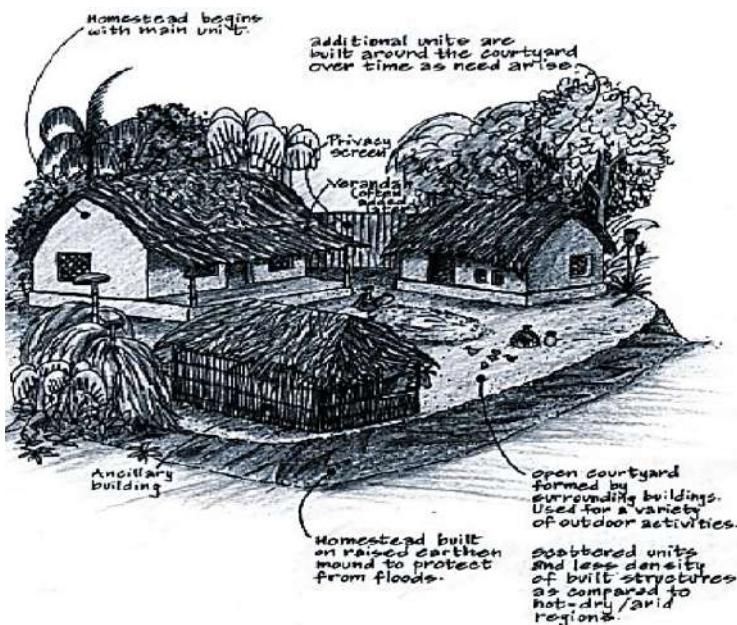 Homestead begins
with main unit.
additional units are
built around the courtyard
over time as need arise.
Privacy
screen
Verandah
(often
added
Ancillary
building
Homestead built
on raised earthen
mound to protect
from floods.
open courtyard
formed by
surrounding buildings.
Used for a variety
of outdoor activities.
scattered units
and less density
of built structures
as compared to
hot-dry/arid
regions.